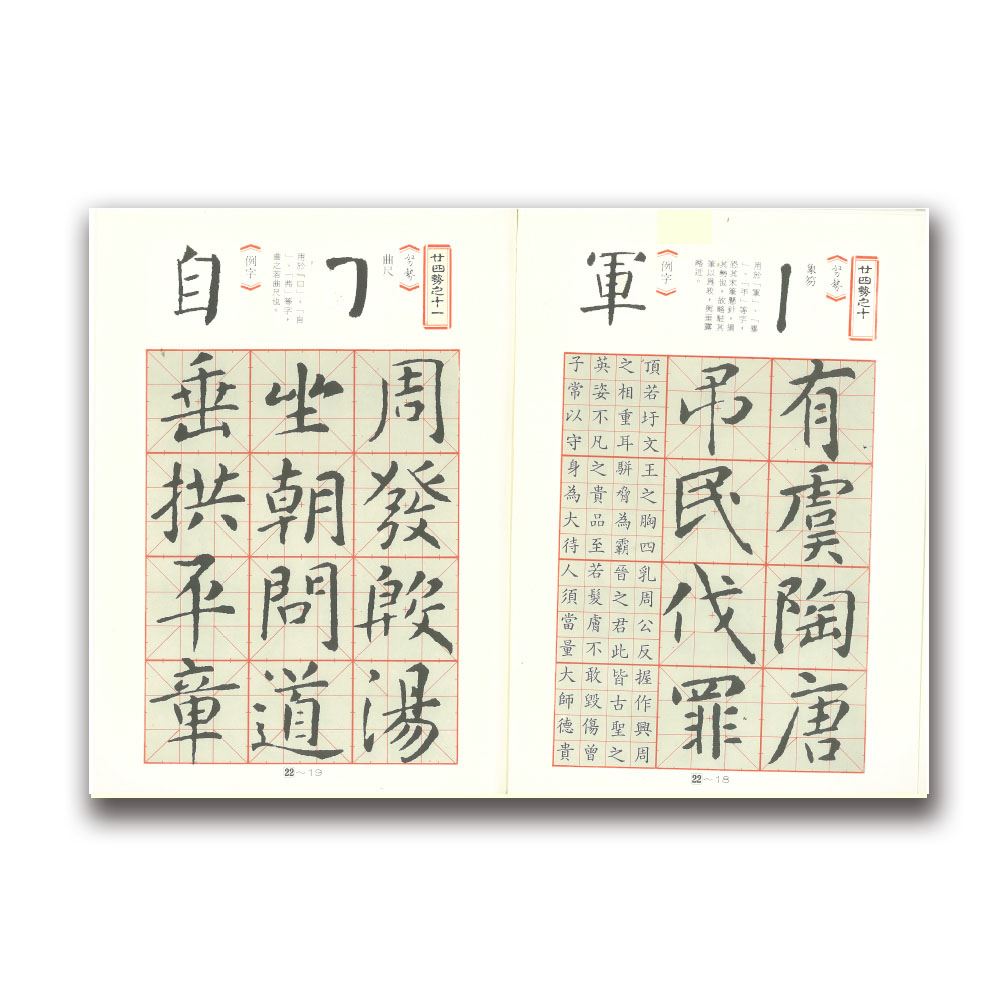 廿四勢之十
《筆勢》
象笏
用於「軍」、「畢
」、「手」等字，
於其末筆懸針，
其勢也。故略駐其
筆以為收，與垂露
略近。
《例字》
軍
有虞陶唐
弔民伐罪
頂若圩文王之胸四乳周公反握作興周
之相重耳駢脅為霸晉之君此皆古聖之
英姿不凡之貴品至若髮膚不敢毀傷曾
子常以守身為大待人須當量大師德貴
22～18
廿四勢之十一
《筆勢》
曲尺
用於「口」、「自
」、「弗」等字，
畫之若曲尺也。
《例字》
自
周發殷湯
坐朝問道
垂拱平章
22～19